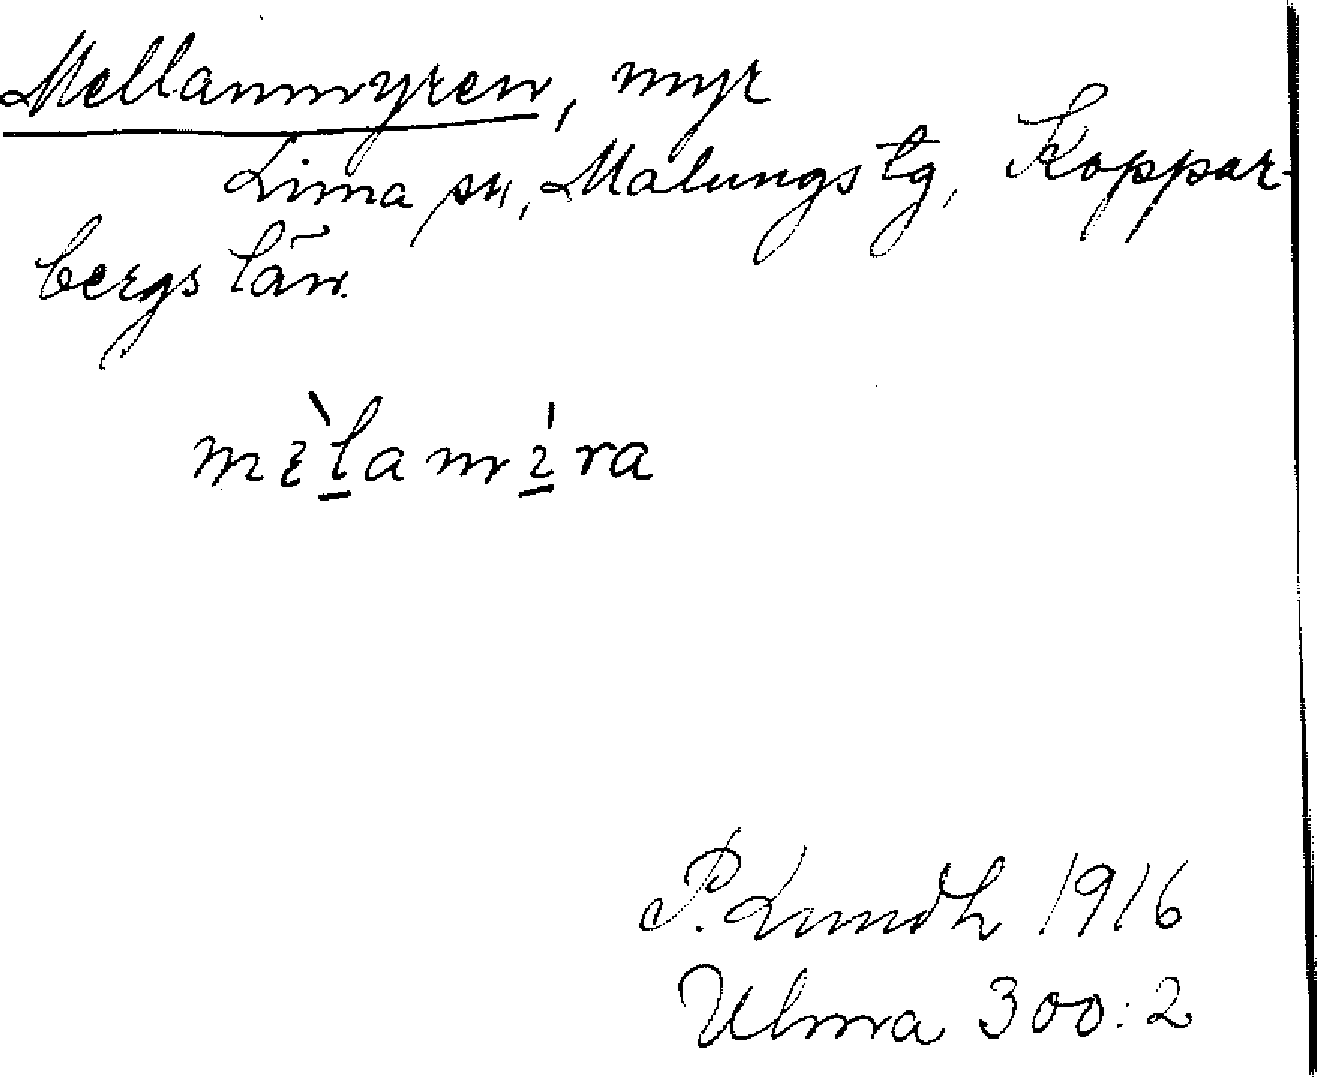 Mellanmyren, myr
Lima sn, Malungs tg, Koppar-
bergs län.
P. Lundh 1916
Ulma 300:2